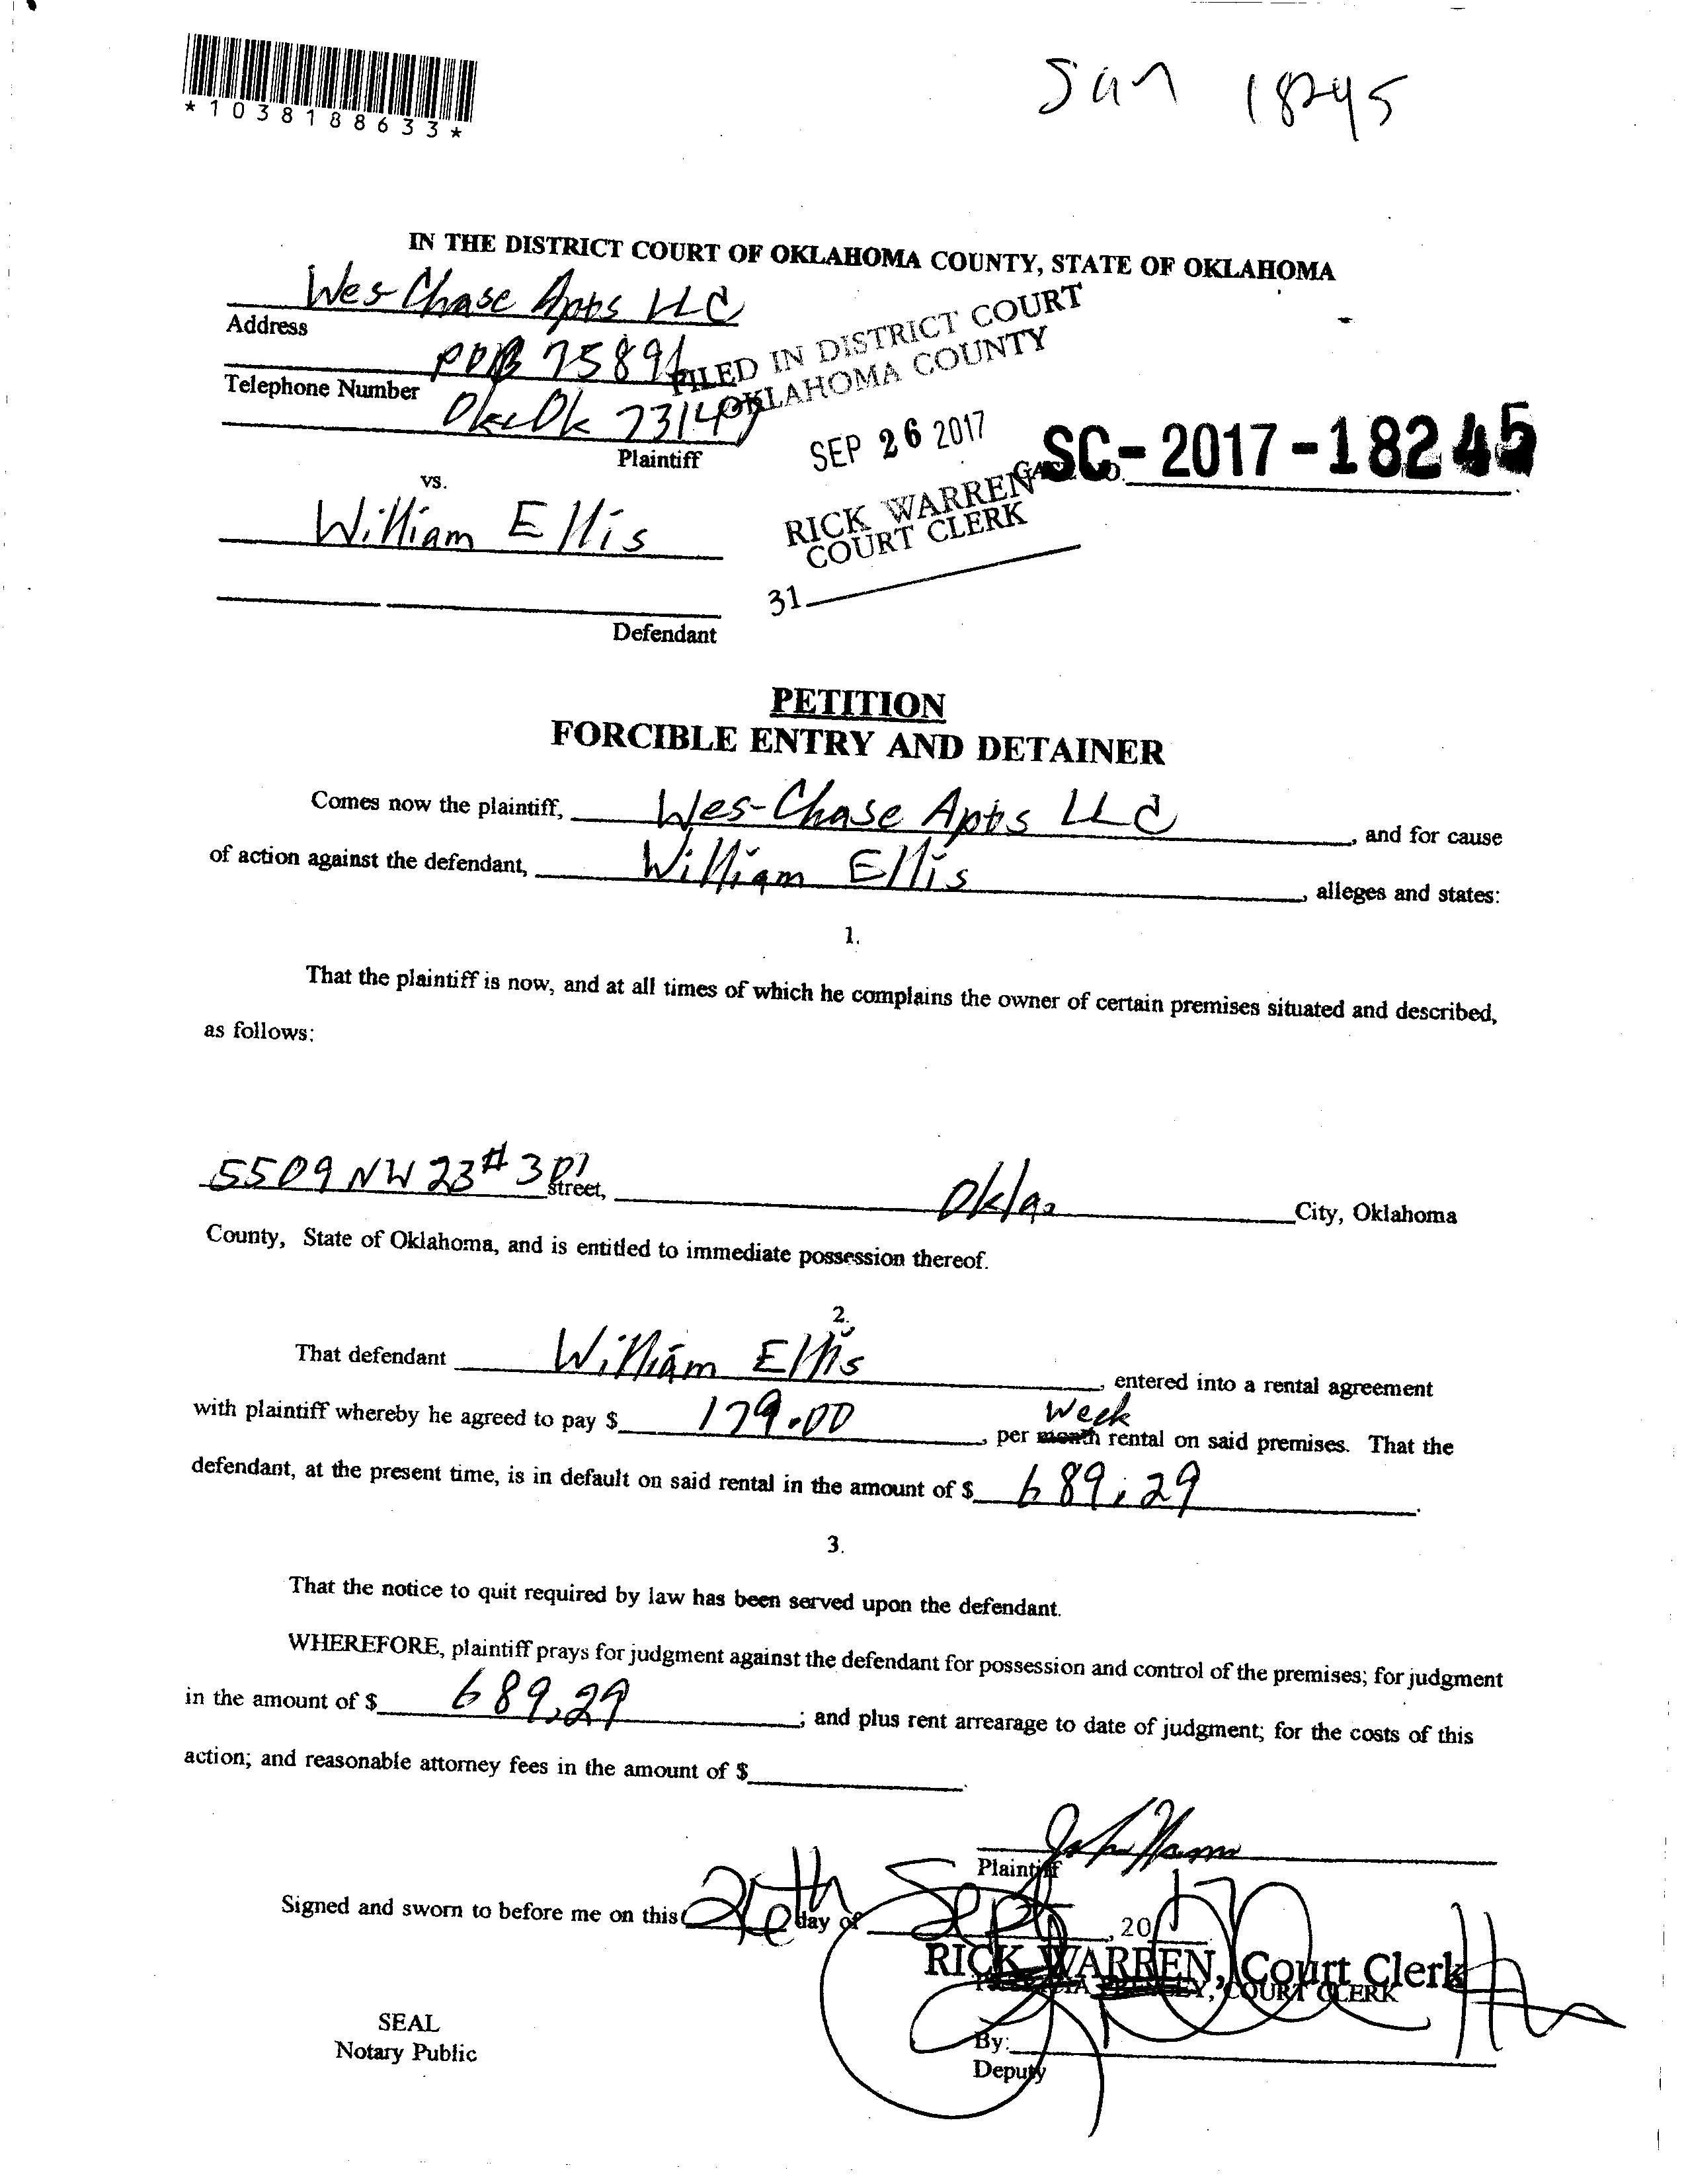 *1038188633*
18245
IN THE DISTRICT COURT OF OKLAHOMA COUNTY, STATE OF OKLAHOMA
Wes-Chase Apts LLC
Address
POB 75891
Telephone Number
Okc Ok 73147
Plaintiff
FILED IN DISTRICT COURT
OKLAHOMA COUNTY
SEP 26 2017
RICK WARREN
COURT CLERK
31
SC-2017-18245
vs.
William Ellis
Defendant
PETITION
FORCIBLE ENTRY AND DETAINER
Comes now the plaintiff, Wes-Chase Apts LLC, and for cause
of action against the defendant, William Ellis, alleges and states:
1.
That the plaintiff is now, and at all times of which he complains the owner of certain premises situated and described,
as follows:
5509 NW 23 # 301 street, Okla. City, Oklahoma
County, State of Oklahoma, and is entitled to immediate possession thereof.
2.
That defendant William Ellis, entered into a rental agreement
Week
with plaintiff whereby he agreed to pay $ 179.00, per month rental on said premises. That the
defendant, at the present time, is in default on said rental in the amount of $ 689.29.
3.
That the notice to quit required by law has been served upon the defendant.
WHEREFORE, plaintiff prays for judgment against the defendant for possession and control of the premises; for judgment
in the amount of $ 689.29; and plus rent arrearage to date of judgment; for the costs of this
action; and reasonable attorney fees in the amount of $.
Plaintiff
Signed and sworn to before me on this 26th day of Sept, 2017
RICK WARREN, Court Clerk
COURT CLERK
SEAL
Notary Public
By:
Deputy